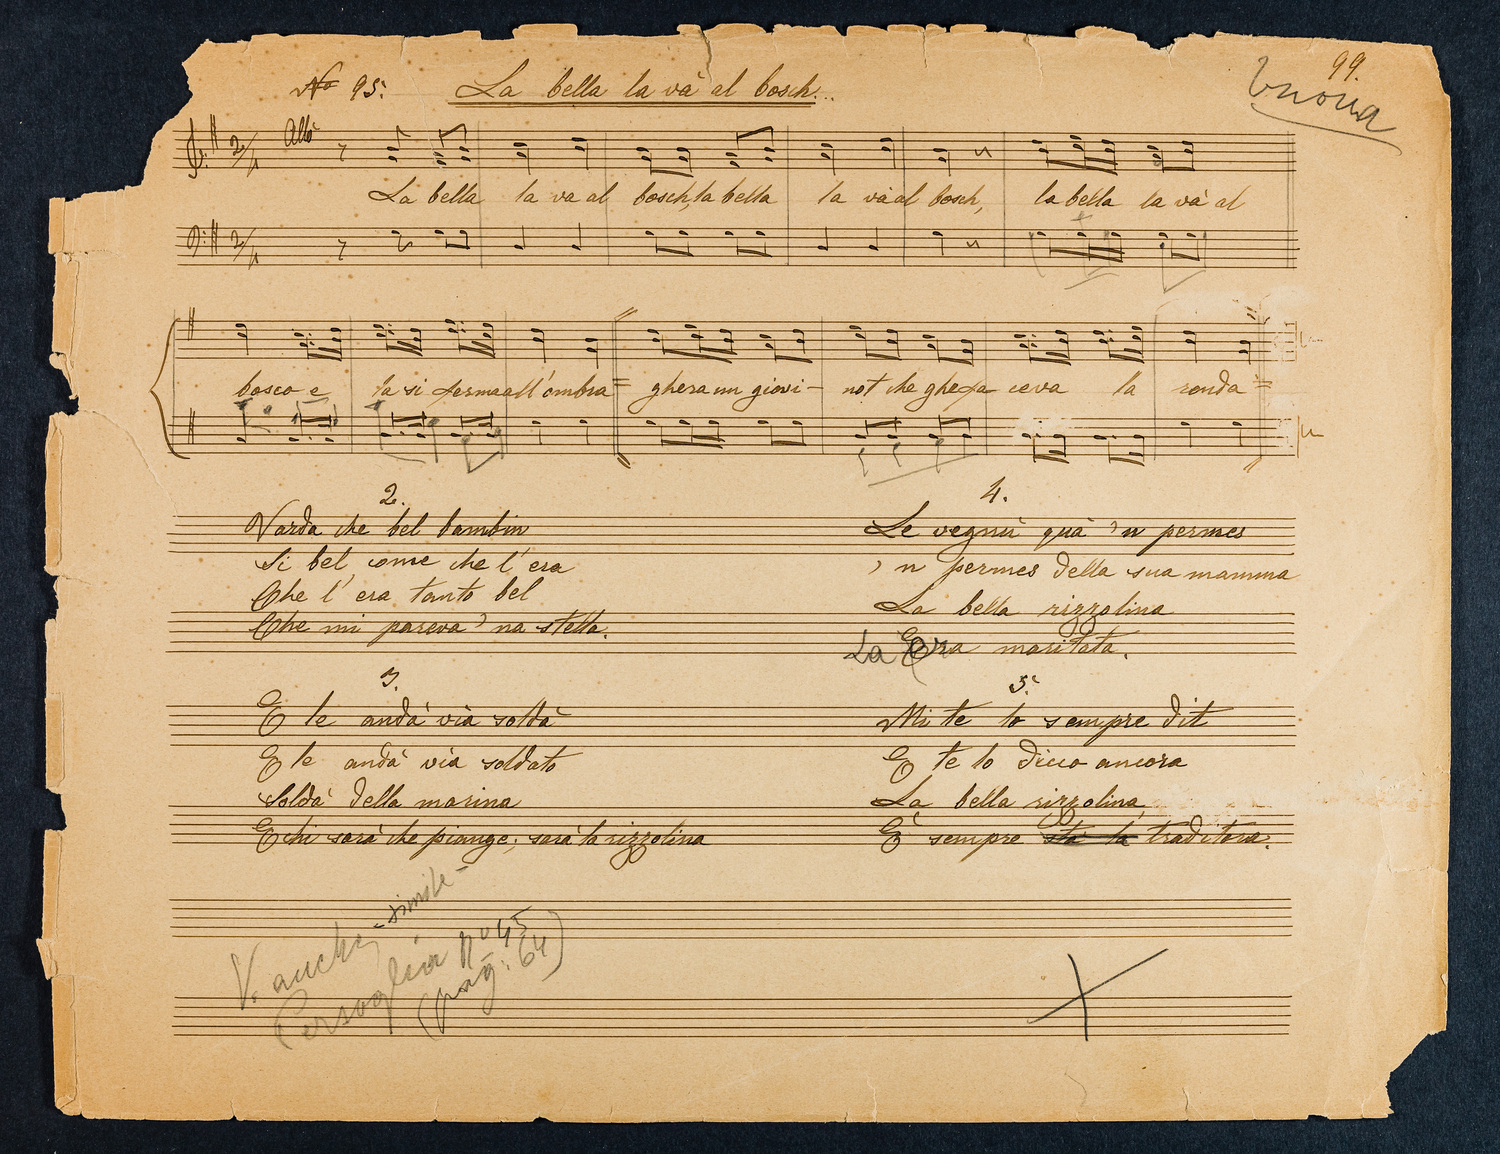 99.
buona
No 95. La bella la và al bosch...
Allo
La bella la va al bosch, la bella la và al bosch, la bella la và al
bosco e la si ferma all'ombra = ghera un giovi- not che ghe fa ceva la ronda =
2.
Varda che bel bambin
Si bel come che l'era
Che l'era tanto bel
Che mi pareva 'na stella.
3.
E le andà via soldà
E le andà via soldato
Soldà della marina
E chi sarà che piange; sarà la rizzolina
4.
Le vegnù quà 'n permes
'n permes della sua mamma
La bella rizzolina
La Era maritata.
5.
Mi te lo sempre dit
E te lo dicco ancora
La bella rizzolina
È sempre sta la traditora.
V. anche - simile -
Cersoglia no 45
(pag. 64)